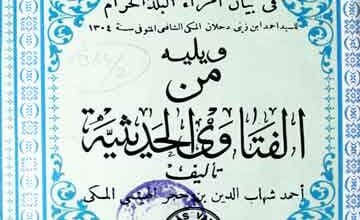 فى بيان أمراء البلد الحرام
للسيد احمد ابن زينى دحلان المكى الشافعى المتوفى سنة ١٣٠٤
ويليه
من
الفتاوى الحديثية
تأليف
أحمد شهاب الدين بن حجر الهيتمى المكى